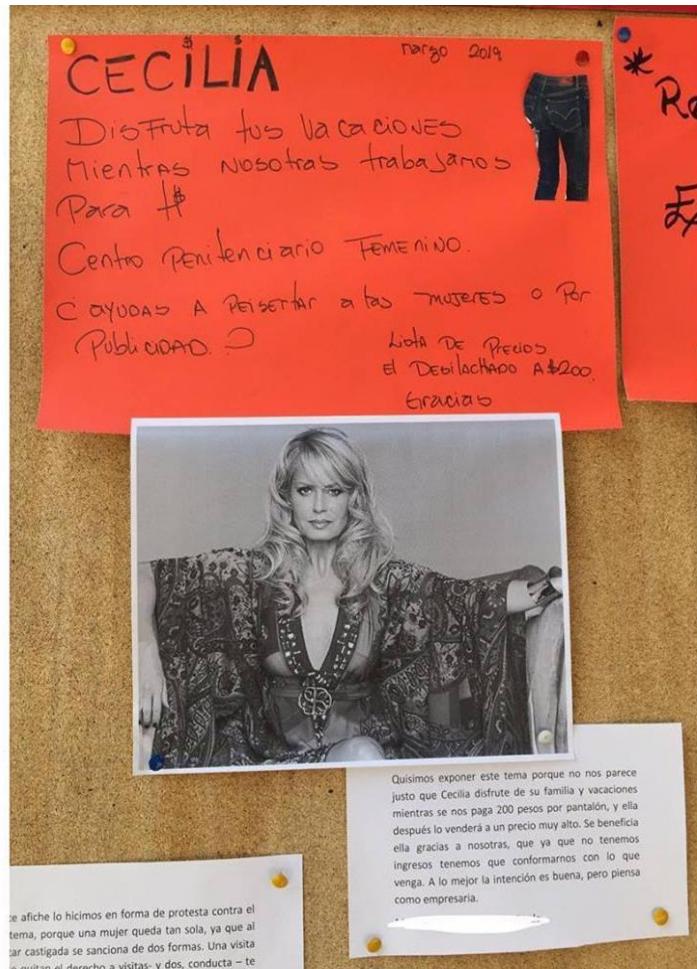 CECILIA
marzo 2019
DisFruta tus Vacaciones
Mientras Nosotras trabajamos
Para ti
Centro Penitenciario Femenino.
¿ AYUDAS A a las mujeres o Por
Publicidad ?
Lista De Precios
El Desilachado A $200.
Gracias
*
Quisimos exponer este tema porque no nos parece
justo que Cecilia disfrute de su familia y vacaciones
mientras se nos paga 200 pesos por pantalón, y ella
después lo venderá a un precio muy alto. Se beneficia
ella gracias a nosotras, que ya que no tenemos
ingresos tenemos que conformarnos con lo que
venga. A lo mejor la intención es buena, pero piensa
como empresaria.
afiche lo hicimos en forma de protesta contra el
porque una mujer queda tan sola, ya que al
castigada se sanciona de dos formas. Una visita
quitan el derecho a visitas- y dos, conducta – te